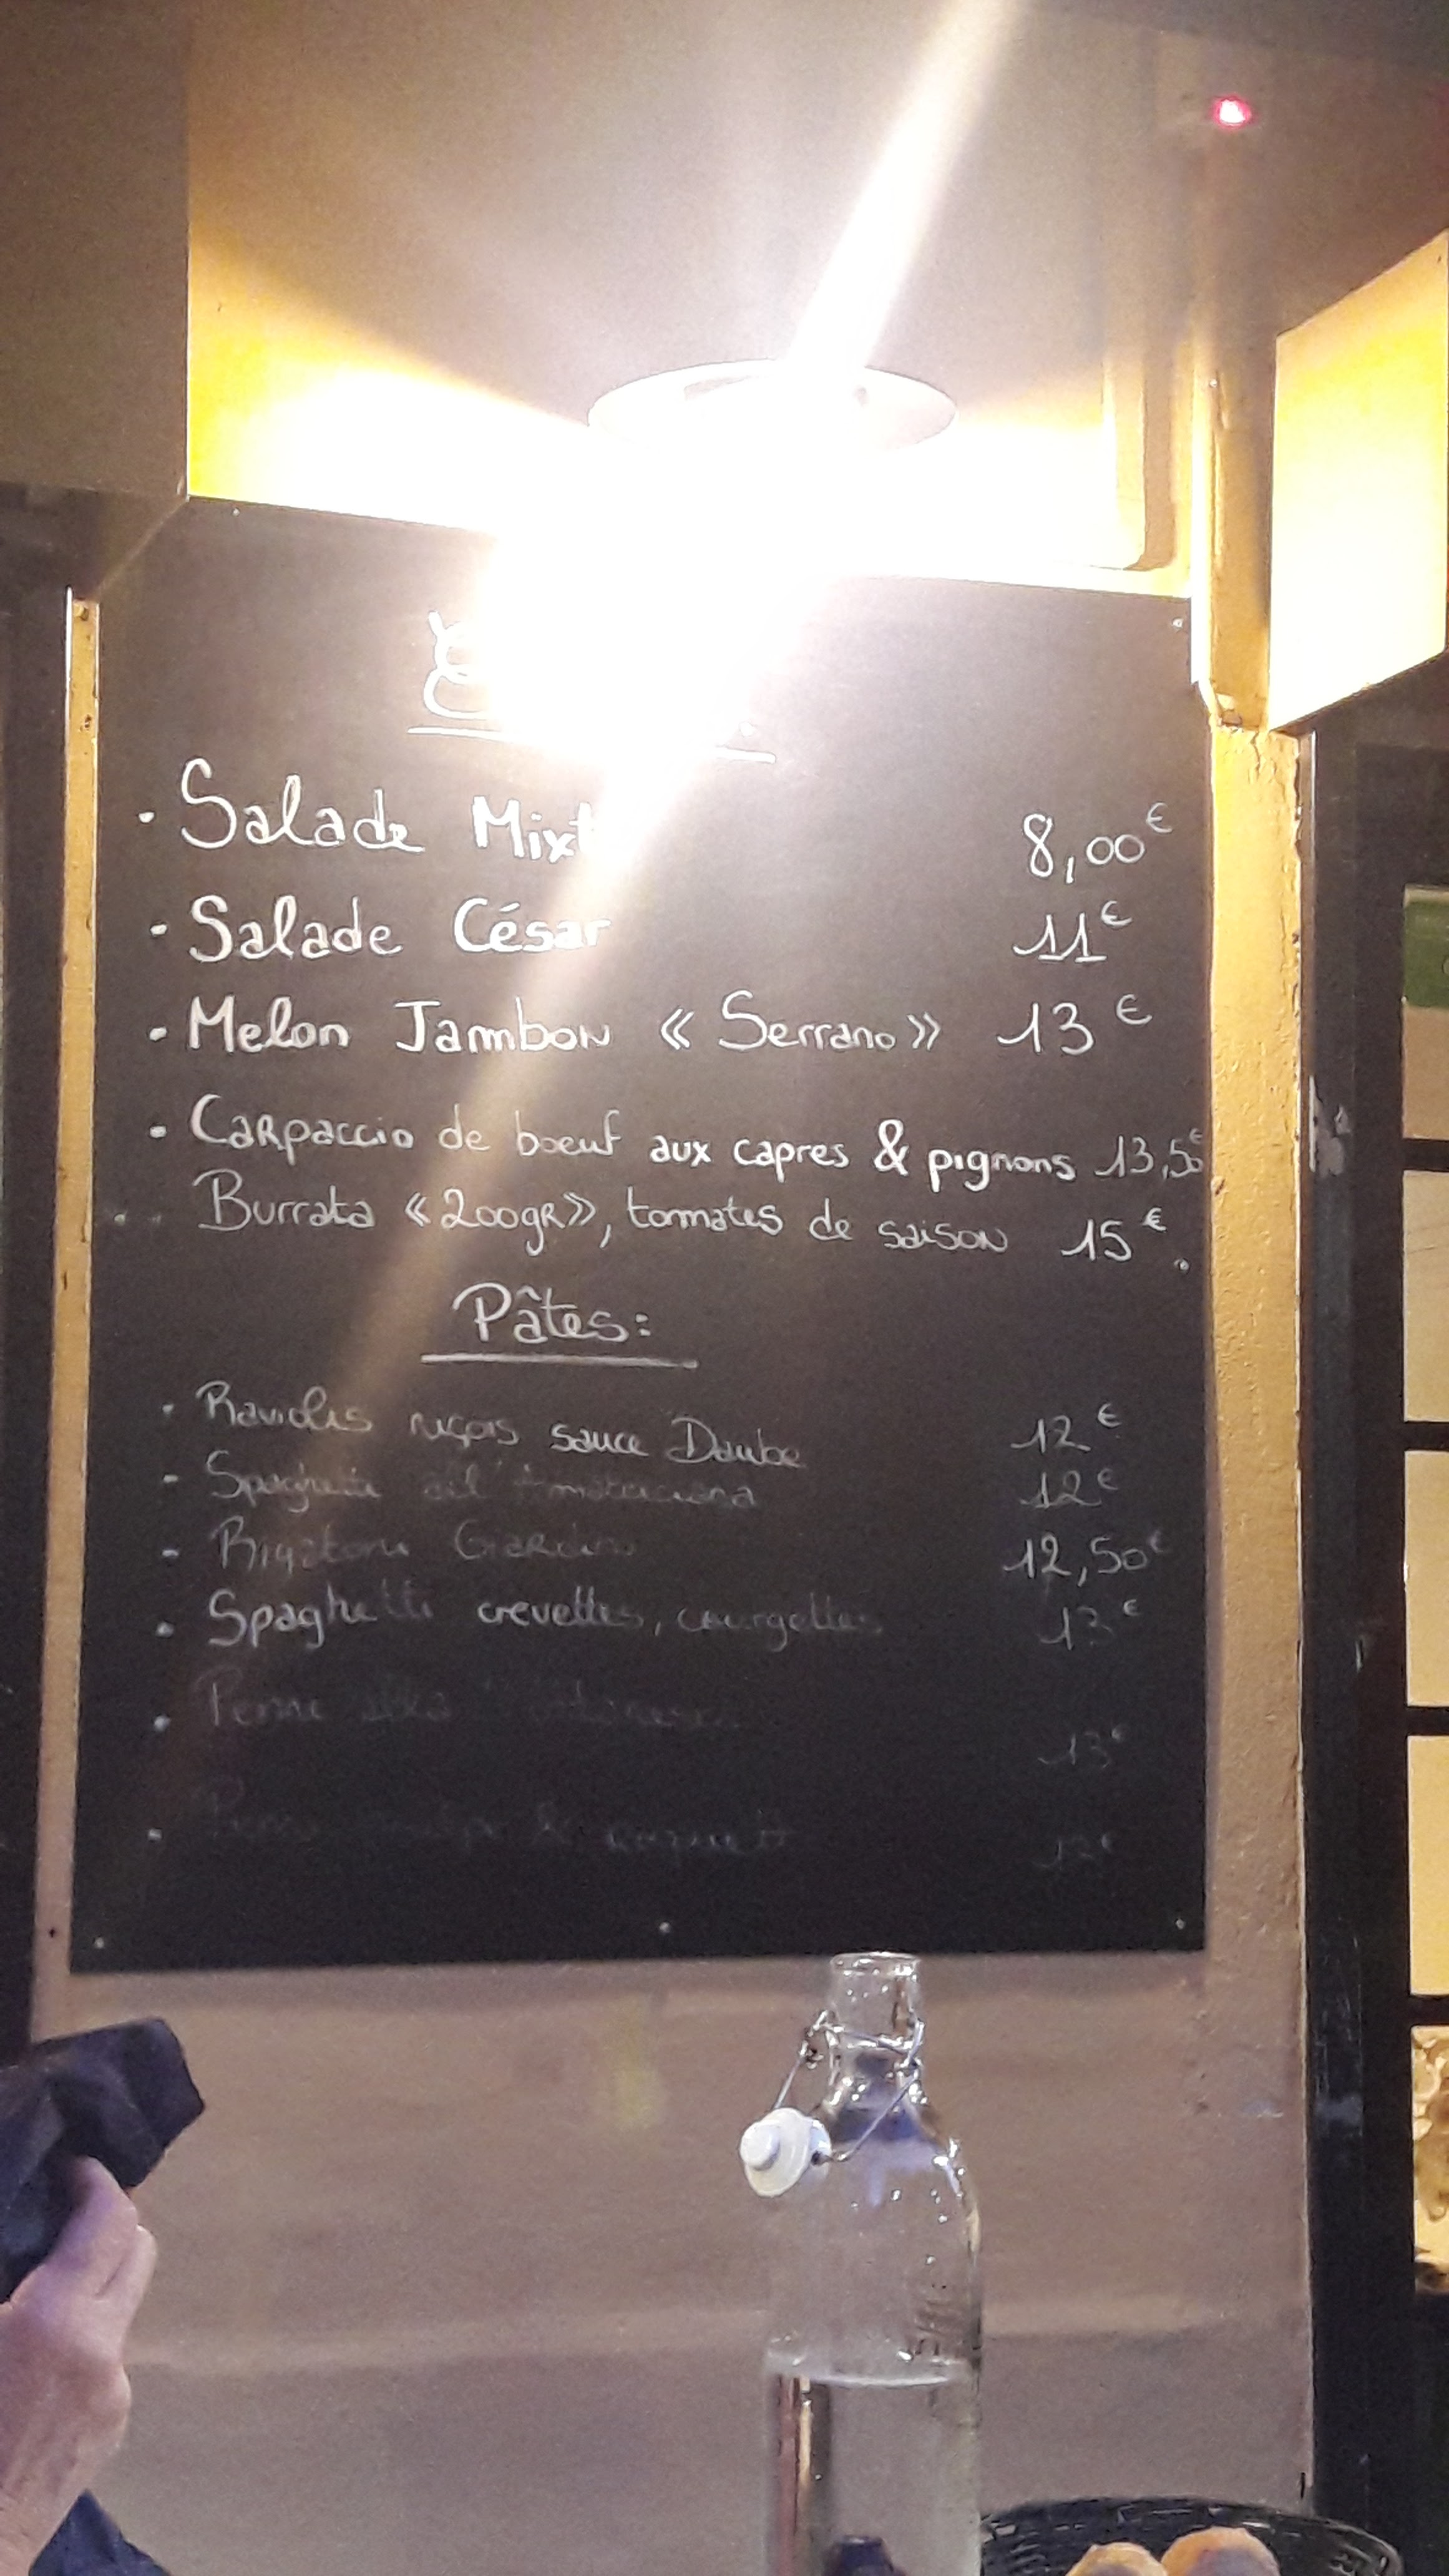 • Salade 8,00€
• Salade César 11€
• Melon Jambon « Serrano » 13€
• Carpaccio de boeuf aux capres & pignons 13,50€
Burrata «200gR», tomates de saison 15€
Pâtes:
• Raviolis niçois sauce Daube 12€
- Spaghetti 12€
- Rigatoni Giardino 12,50€
• Spaghetti crevettes, courgettes 13€
• Penne alla 13€
•